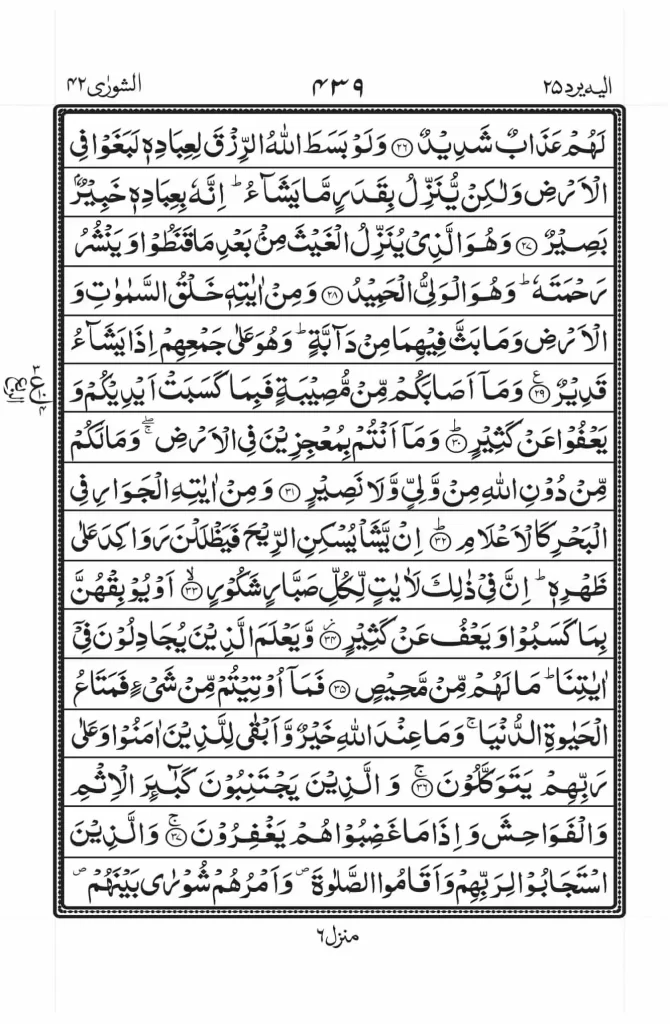 الیه یرد ۲۵ ۴۳۹ الشورٰی ۴۲
لَهُمْ عَذَابٌ شَدِيْدٌ ﴿۲۶﴾ وَلَوْ بَسَطَ اللّٰهُ الرِّزْقَ لِعِبَادِهٖ لَبَغَوْا فِى
الْاَرْضِ وَلٰكِنْ يُّنَزِّلُ بِقَدَرٍ مَّا يَشَآءُ ؕ اِنَّهٗ بِعِبَادِهٖ خَبِيْرٌۢ
بَصِيْرٌ ﴿۲۷﴾ وَهُوَ الَّذِىْ يُنَزِّلُ الْغَيْثَ مِنْۢ بَعْدِ مَا قَنَطُوْا وَيَنْشُرُ
رَحْمَتَهٗ ؕ وَهُوَ الْوَلِىُّ الْحَمِيْدُ ﴿۲۸﴾ وَمِنْ اٰيٰتِهٖ خَلْقُ السَّمٰوٰتِ وَ
الْاَرْضِ وَمَا بَثَّ فِيْهِمَا مِنْ دَآبَّةٍ ؕ وَهُوَ عَلٰى جَمْعِهِمْ اِذَا يَشَآءُ
قَدِيْرٌ ﴿۲۹﴾ وَمَاۤ اَصَابَكُمْ مِّنْ مُّصِيْبَةٍ فَبِمَا كَسَبَتْ اَيْدِيْكُمْ وَ
يَعْفُوْا عَنْ كَثِيْرٍ ؕ ﴿۳۰﴾ وَمَاۤ اَنْتُمْ بِمُعْجِزِيْنَ فِى الْاَرْضِ ۖۚ وَمَا لَكُمْ
مِّنْ دُوْنِ اللّٰهِ مِنْ وَّلِىٍّ وَّلَا نَصِيْرٍ ﴿۳۱﴾ وَمِنْ اٰيٰتِهِ الْجَوَارِ فِى
الْبَحْرِ كَالْاَعْلَامِ ؕ ﴿۳۲﴾ اِنْ يَّشَاْ يُسْكِنِ الرِّيْحَ فَيَظْلَلْنَ رَوَاكِدَ عَلٰى
ظَهْرِهٖ ؕ اِنَّ فِىْ ذٰلِكَ لَاٰيٰتٍ لِّكُلِّ صَبَّارٍ شَكُوْرٍ ۙ ﴿۳۳﴾ اَوْ يُوْبِقْهُنَّ
بِمَا كَسَبُوْا وَيَعْفُ عَنْ كَثِيْرٍ ؗ ﴿۳۴﴾ وَّيَعْلَمَ الَّذِيْنَ يُجَادِلُوْنَ فِىْۤ
اٰيٰتِنَا ؕ مَا لَهُمْ مِّنْ مَّحِيْصٍ ﴿۳۵﴾ فَمَاۤ اُوْتِيْتُمْ مِّنْ شَىْءٍ فَمَتَاعُ
الْحَيٰوةِ الدُّنْيَا ۚ وَمَا عِنْدَ اللّٰهِ خَيْرٌ وَّاَبْقٰى لِلَّذِيْنَ اٰمَنُوْا وَعَلٰى
رَبِّهِمْ يَتَوَكَّلُوْنَ ۚ ﴿۳۶﴾ وَالَّذِيْنَ يَجْتَنِبُوْنَ كَبٰٓئِرَ الْاِثْمِ
وَالْفَوَاحِشَ وَاِذَا مَا غَضِبُوْا هُمْ يَغْفِرُوْنَ ۚ ﴿۳۷﴾ وَالَّذِيْنَ
اسْتَجَابُوْا لِرَبِّهِمْ وَاَقَامُوا الصَّلٰوةَ ۪ وَاَمْرُهُمْ شُوْرٰى بَيْنَهُمْ ۪
منزل ۶